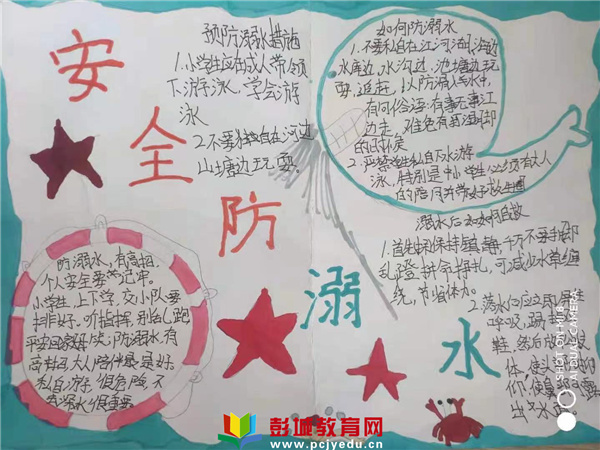 安全防溺水
预防溺水措施
1.小学生应在成人带领
下游泳,学会游
泳
2.不要独自在河边
山塘边玩耍。
如何防溺水
1.不要私自在江河湖海边
水库边,水沟边,池塘边玩
耍,追赶,以防滑入水中,
有句俗语:有事无事江
边走,难免有打湿脚
的时候
2.严禁学生私自下水游
泳,特别是中小学生必须有大人
的陪同并带好救生圈
溺水后如何自救
1.首先应保持镇静,千万不要手脚
乱蹬拼命挣扎,可减少水草缠
绕,节省体力。
2.落水后应立用
呼吸,踢
鞋,然后
体,使
仰,使
出水面。
防溺水,有高招,
个人安全要牢记牢。
小学生,上下学,交小队要
排好。听指挥,别乱跑
平安回家 防溺水,有
高招,大人陪伴最是好。
私自游泳很危险,不
溺水很重要。
彭城教育网
www.pcjyedu.cn
SHOT ON K10
AI DUAL CAMERA